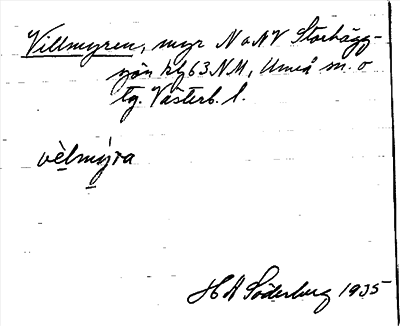 Villmyren, myr N o NV Storhägg-
sjön kbl 63 NM, Umeå m. o
tg. Västerb. l.
vèlmýra
H A Söderberg 1935